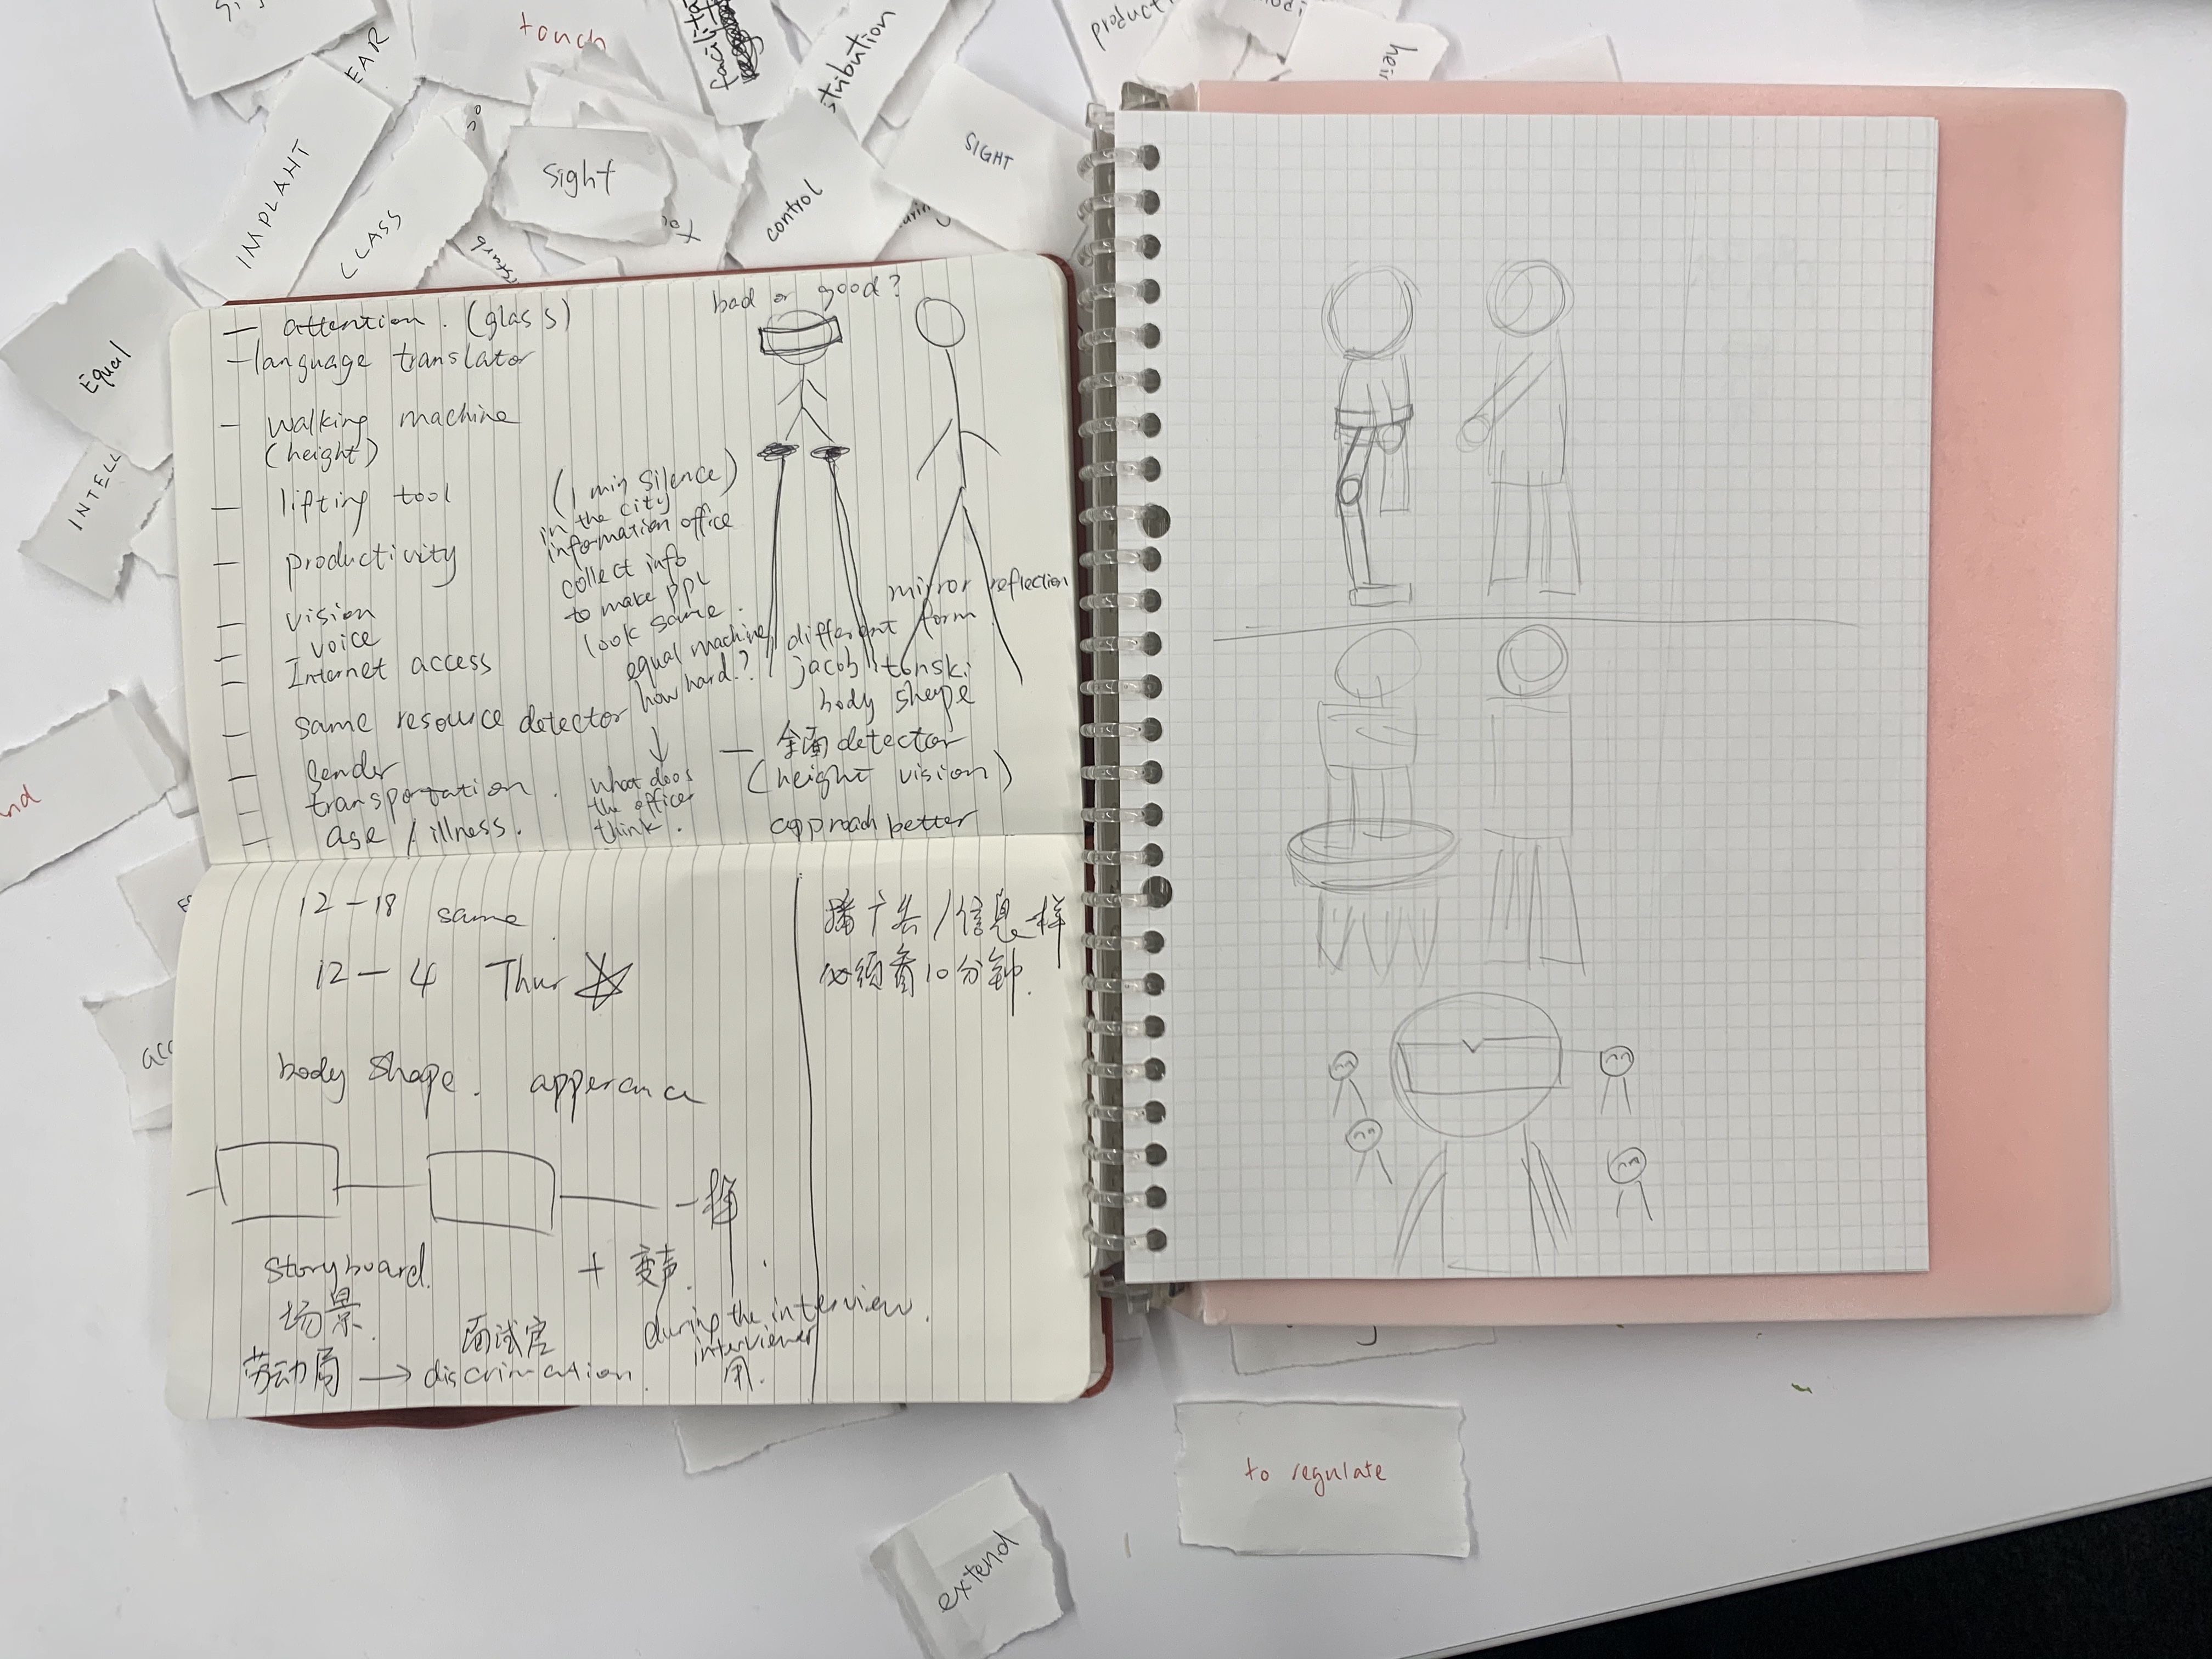 touch
EAR
stribution
IMPLANT
CLASS
sight
control
SIGHT
Equal
INTELL
bad or good?
— attention. (glass)
— language translator
— walking machine
(height)
— lifting tool
— productivity
— vision
— voice
— Internet access
— same resource detector
— Gender
— transportation.
— age / illness.
(1 min silence)
in the city
information office
collect info
to make ppl
look same.
equal machine
how hard?
↓
what does
the officer
think.
mirror reflection
different form
jacob tonski
body shape
— 全面detector
(height vision)
approach better
12 — 18 same
12 — 4 Thur ☆
body shape. apperance
Storyboard.
场景.
劳动局 → discrimation.
面试官
+ 变声.
during the interview.
interviewer
用.
/信息一样
必须看10分钟.
to regulate
extend